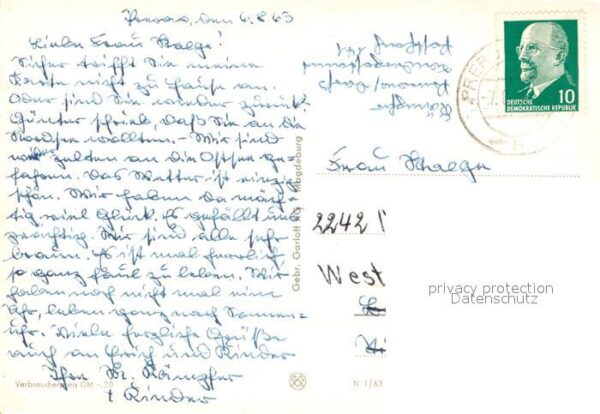 Prerow, den 6.8.63
Liebe Frau Staege!
Sicher trifft Sie meine
Karte nicht zu Hause an.
Oder sind Sie wieder zurück?
Günter schrieb, daß Sie an die
Nordsee wollten. - Wir sind
zelten an die Ostsee ge-
fahren. Das Wetter ist einzig
schön. Wir haben da mäch-
tig viel Glück. Es gefällt uns
prächtig. Wir sind alle sehr
braun. Es ist mal herrlich,
so ganz faul zu leben. Wir
haben noch nicht mal eine
Uhr, leben ganz nach Sonnen-
uhr. Viele herzliche Grüße
auch an Erich und Kinder
Ihre Kämpfer
+ Kinder
Verbraucherpreis DM -,20
Gebr. Garloff KG Magdeburg
N 1/63
Kämpfer
Prerow/Darß
postlag.
DEUTSCHE
DEMOKRATISCHE REPUBLIK
10
b
Frau Staege
2242
West
privacy protection
Datenschutz